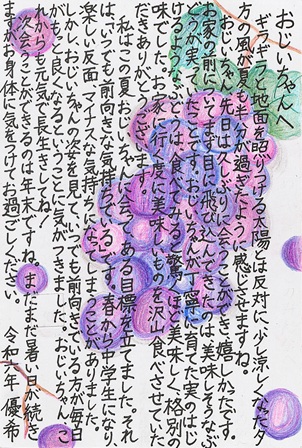 おじいちゃんへ
ギラギラと地面を照りつける太陽とは反対に、少し涼しくなった夕
方の風が夏も半分が過ぎたように感じさせますね。
おじいちゃん、先日は久しぶりに会うことができ嬉しかったです。
お家の前について、いつも目に飛び込んできたのは、美味しそうな
ぶどうが実っていたことです。おじいちゃんが丁寧に育てた実のはじ
けるようなぶどうは、食べてみると驚くほど美味しく、格別な
味でした。お家に行く度に美味しいものを沢山食べさせていた
だきありがとうございます。
私はこの夏おじいちゃんに会い、ある目標を立てました。それ
は、いつでも前向きな気持ちでいることです。春から中学生になり、
楽しい反面、マイナスな気持ちになってしまうことがありました。
しかし、おじいちゃんの姿を見て、いつも前向きでいる方が毎日
がもっと良くなるということに気がつきました。おじいちゃん、こ
れからも元気で長生きしてね。
次会うことができるのは年末ですね。まだまだ暑い日が続き
ますがお身体に気をつけてお過ごしください。
令和六年 優希